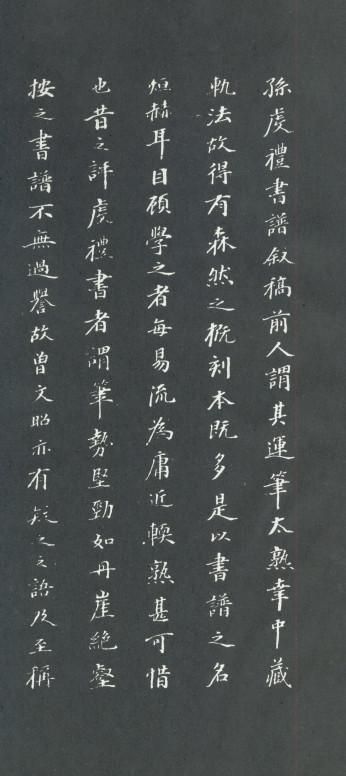 孫虔禮書譜敍稿前人謂其運筆太熟幸中藏
軌法故得有森然之概刻本既多是以書譜之名
烜赫耳目顧學之者每易流為庸近輭熟甚可惜
也昔之評虔禮書者謂筆勢堅勁如丹崖絕壑
按之書譜不無過譽故曾文昭亦有疑之之語及至稱